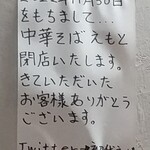 をもちまして...
中華そばえもと
閉店いたします。
きていただいた
お客様ありがとう
ございます。
Twitter